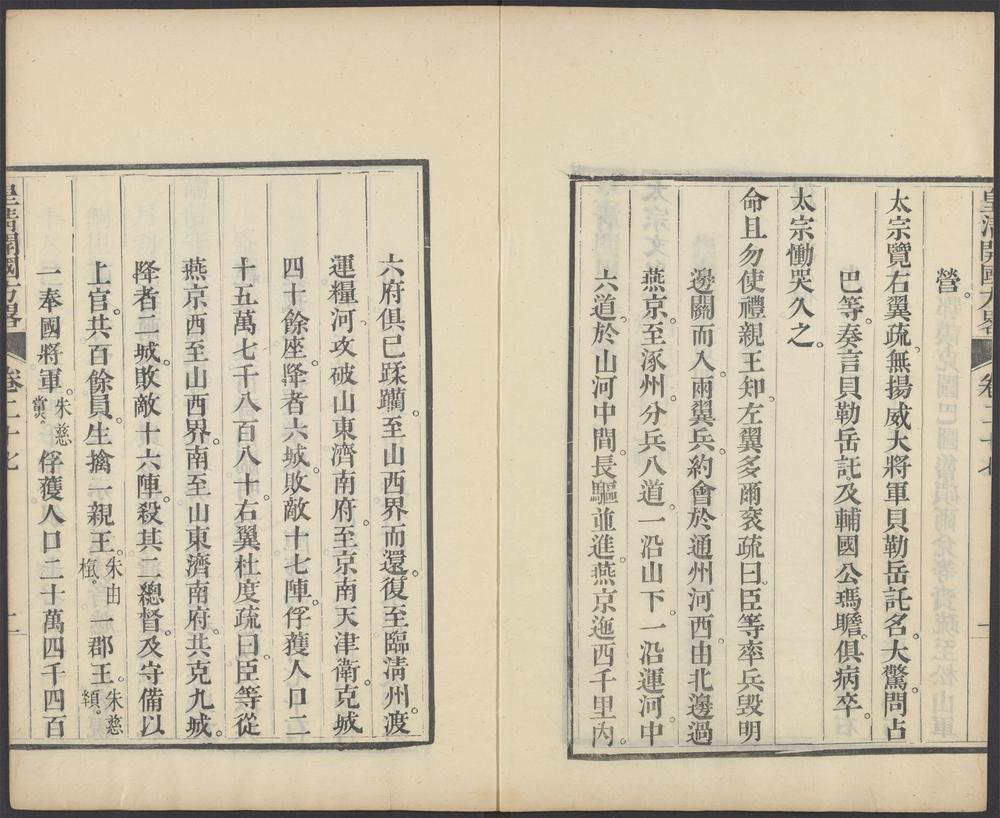 皇清開國方畧 卷二十七 一
營。
太宗覽右翼疏。無揚威大將軍貝勒岳託名。大驚。問占
巴等。奏言貝勒岳託。及輔國公瑪瞻。俱病卒。
太宗慟哭久之。
命且勿使禮親王知。左翼多爾袞疏曰。臣等率兵毀明
邊關而入。兩翼兵約會於通州河西。由北邊過
燕京。至涿州。分兵八道。一沿山下。一沿運河。中
六道。於山河中間。長驅並進。燕京迤西千里內。
六府俱已蹂躪。至山西界而還。復至臨清州。渡
運糧河。攻破山東濟南府。至京南天津衛。克城
四十餘座。降者六城。敗敵十七陣。俘獲人口二
十五萬七千八百八十。右翼杜度疏曰。臣等從
燕京西至山西界。南至山東濟南府。共克九城。
降者二城。敗敵十六陣。殺其二總督。及守備以
上官。共百餘員。生擒一親王。朱由樻。一郡王。朱慈頛。
一奉國將軍。朱慈黨。俘獲人口二十萬四千四百
皇清開國方畧 卷二十七